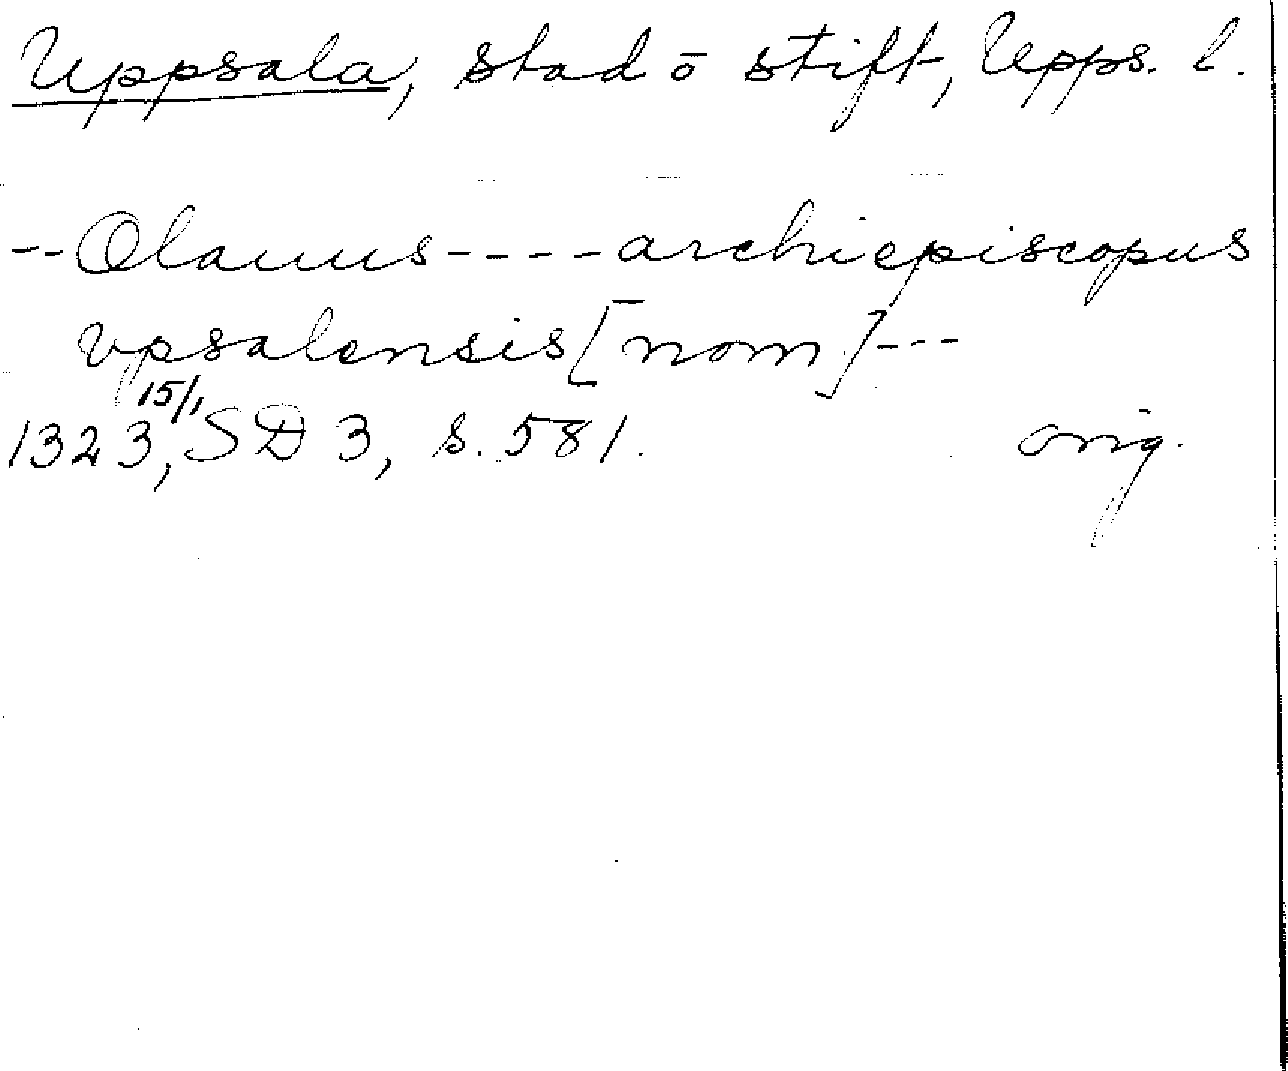 Uppsala, stad o stift, Upps. l.
-- Olauus ---- archiepiscopus
vpsalensis [nom] ---
1323 15/1, SD 3, s. 581. orig.